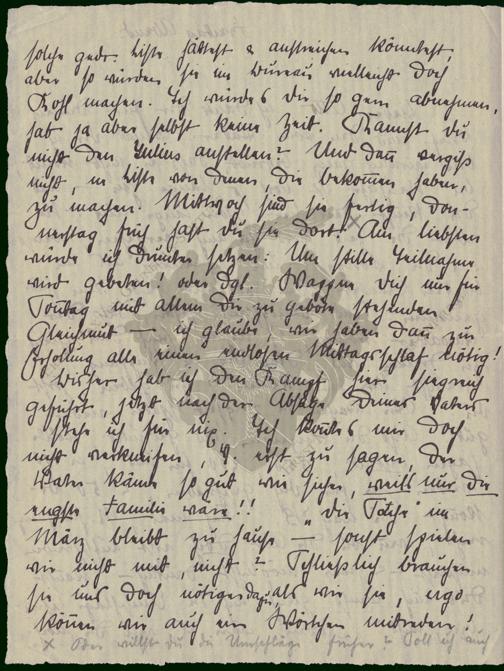 solche gedr. Liste hättest & anstreichen könntest,
aber so würden sie im Bureau vielleicht doch
Kohl machen. Ich würde es dir so gern abnehmen,
hab ja aber selbst keine Zeit. Kannst du
nicht den Julius anstellen? Und dañ vergiß
nicht, ne Liste von denen, die bekom̄en haben,
zu machen. Mittwoch sind sie fertig, Don-
nerstag früh hast du sie dort. x Am liebsten
würde ich drunter setzen: Um stille Teilnahme
wird gebeten! oder dgl. Wappne dich nur für
Son̄tag mit allem dir zu gebote stehenden
Gleichmut — ich glaube, wir haben dañ zur
Erholung alle einen endlosen Mittagsschlaf nötig!
Bisher hab ich den Kampf hier siegreich
geführt, jetzt nach der Absage Deines Vaters
stehe ich für nix. Ich kon̄te es mir doch
nicht verkneifen, erst zu sagen, der
Vater käme so gut wie sicher, weils nur die
engste Familie wäre!! "die
März bleibt zu hause — sonst spielen
wir nicht mit, nicht? Schließlich brauchen
sie uns doch nötiger dazu, als wir sie, ergo
kön̄en wir auch ein Wörtchen mitreden!
x Oder willst du die Umschläge früher? Soll ich auch